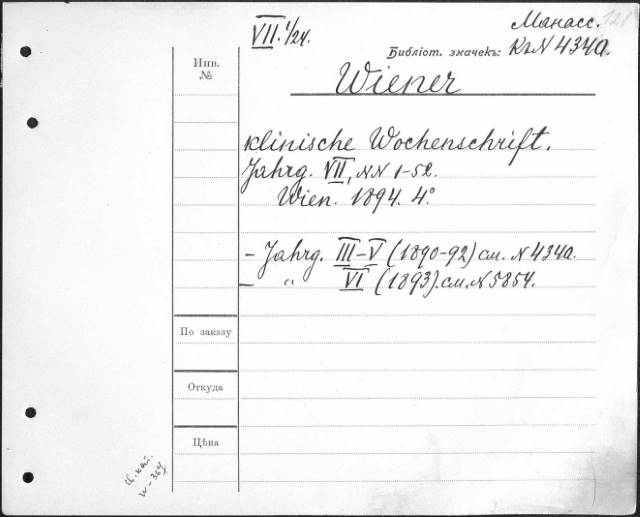 VII. 1/24.
Манасс. 121
Библіот. значекъ: Кг N 434a.
Инв.
№
Wiener
klinische Wochenschrift.
Jahrg. VII, NN 1-52.
Wien. 1894. 4°
- Jahrg. III-V (1890-92) см. N 434a.
- " VI (1893). см. N 5854.
По заказу
Откуда
Цѣна
W-364